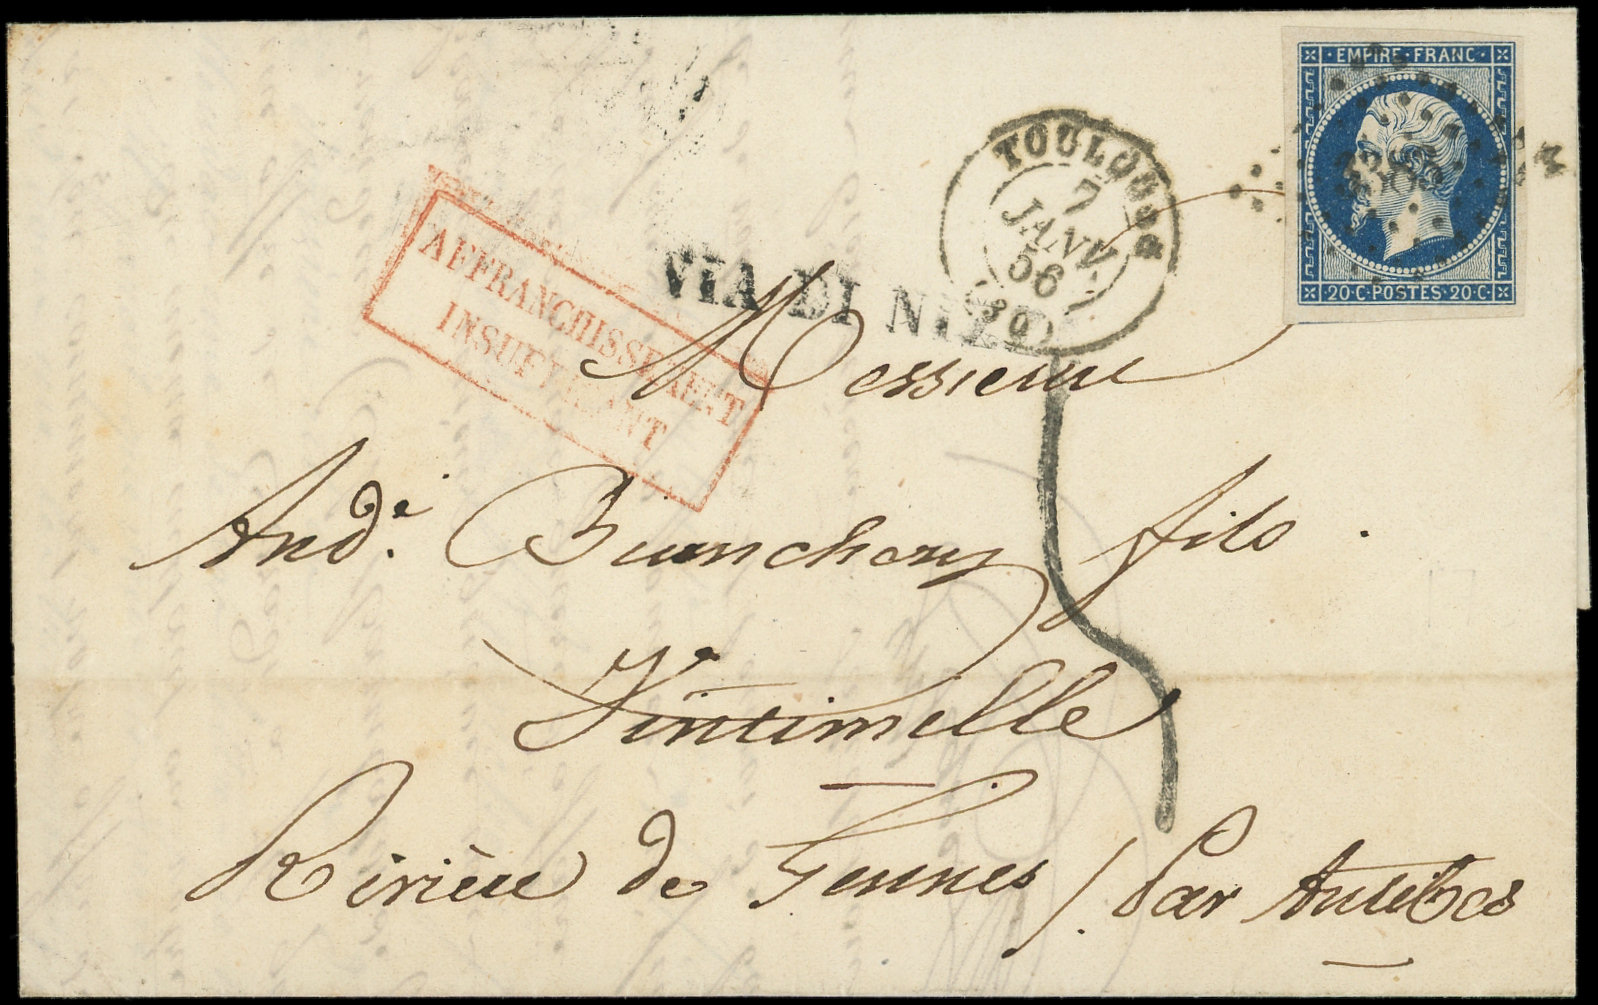 EMPIRE · FRANC
20·C·POSTES·20·C
3383
TOULOUSE
7
JANV.
56
(30)
VIA DI NIZZA
AFFRANCHISSEMENT
INSUFFISANT
Messieurs
And.
fils
Vintimelle
Rivière de Gennes / Par Antibes
5